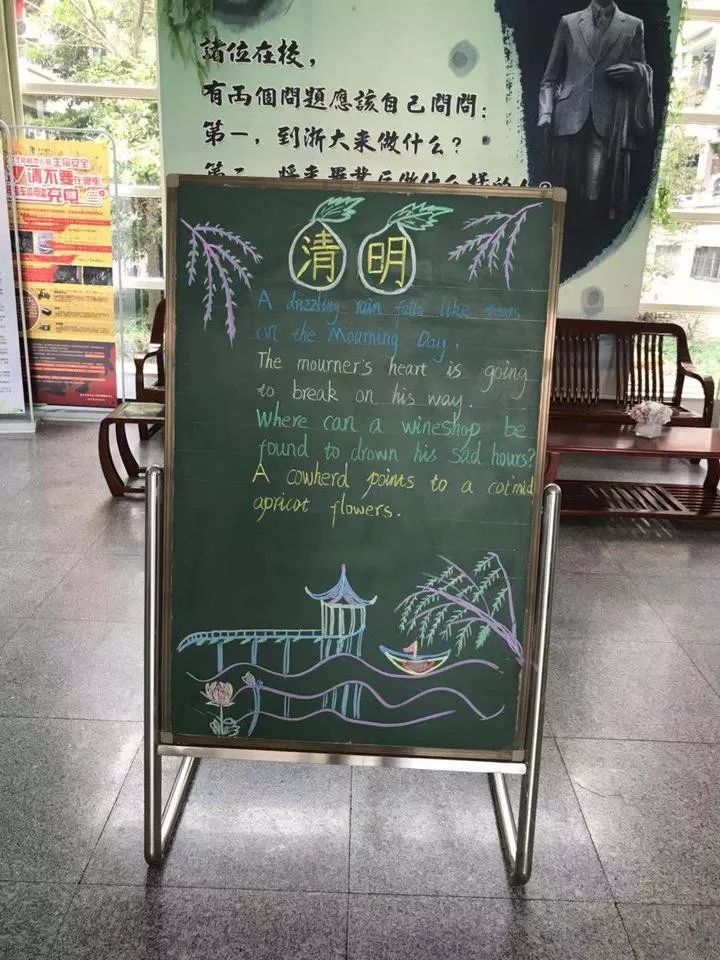 諸位在校，
有两個問題應該自己問問：
第一，到浙大来做什么？
生命安全
请不要在楼里
充電
清明
A drizzling rain falls like tears
on the Mourning Day.
The mourner's heart is going
to break on his way.
Where can a wineshop be
found to drown his sad hours?
A cowherd points to a cotmid
apricot flowers.